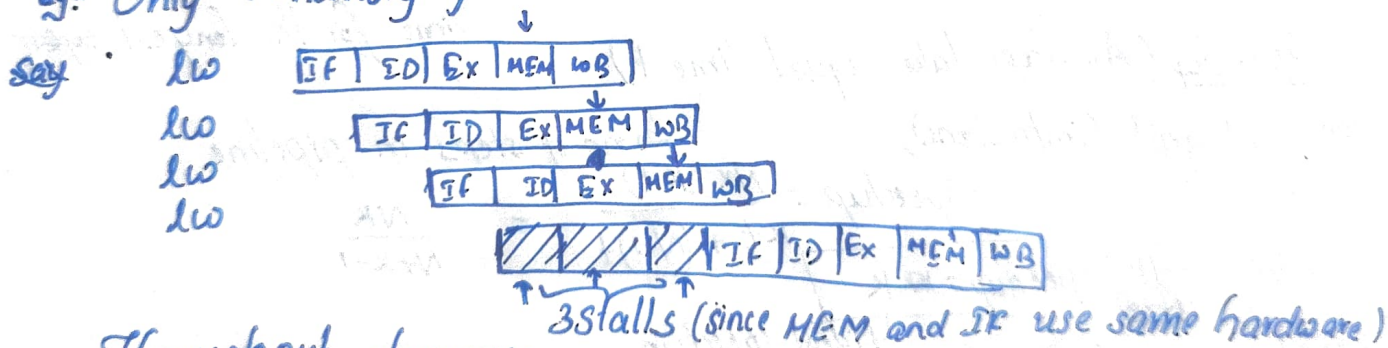 g. Only
say lw IF ID Ex MEM WB
lw IF ID Ex MEM WB
lw IF ID Ex MEM WB
lw IF ID Ex MEM WB
3 stalls (since MEM and IF use same hardware)